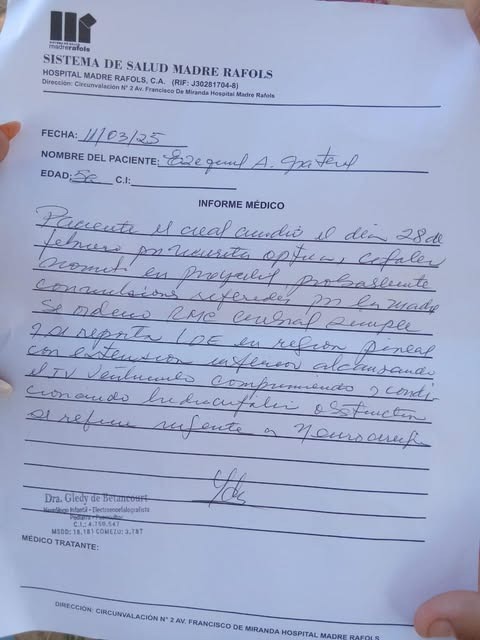 madrerafols
SISTEMA DE SALUD MADRE RAFOLS
HOSPITAL MADRE RAFOLS, C.A. (RIF: J30281704-8)
Dirección: Circunvalación N° 2 Av. Francisco De Miranda Hospital Madre Rafols
FECHA: 11/03/25
NOMBRE DEL PACIENTE: A.
EDAD: 5a C.I:
INFORME MÉDICO
Paciente el cual acudió el día 28 de
febrero por neuritis optica, cefalea
vomito en proyectil probablemente
convulsiones referidas por la madre
Se ordeno RMC cerebral simple
reporta LOE en region pineal
con extension inferior alcanzando
el IV ventriculo comprimiendo y condi
cionando hidrocefalia obstructiva
se refiere urgente a Neurocirugia
Dra. Gledy de Betancourt
Neurólogo Infantil - Electroencefalografista
C.I.: 4.760.547
MSDS: 18.181 COMEZU: 3.787
MÉDICO TRATANTE:
DIRECCIÓN: CIRCUNVALACIÓN N° 2 AV. FRANCISCO DE MIRANDA HOSPITAL MADRE RAFOLS